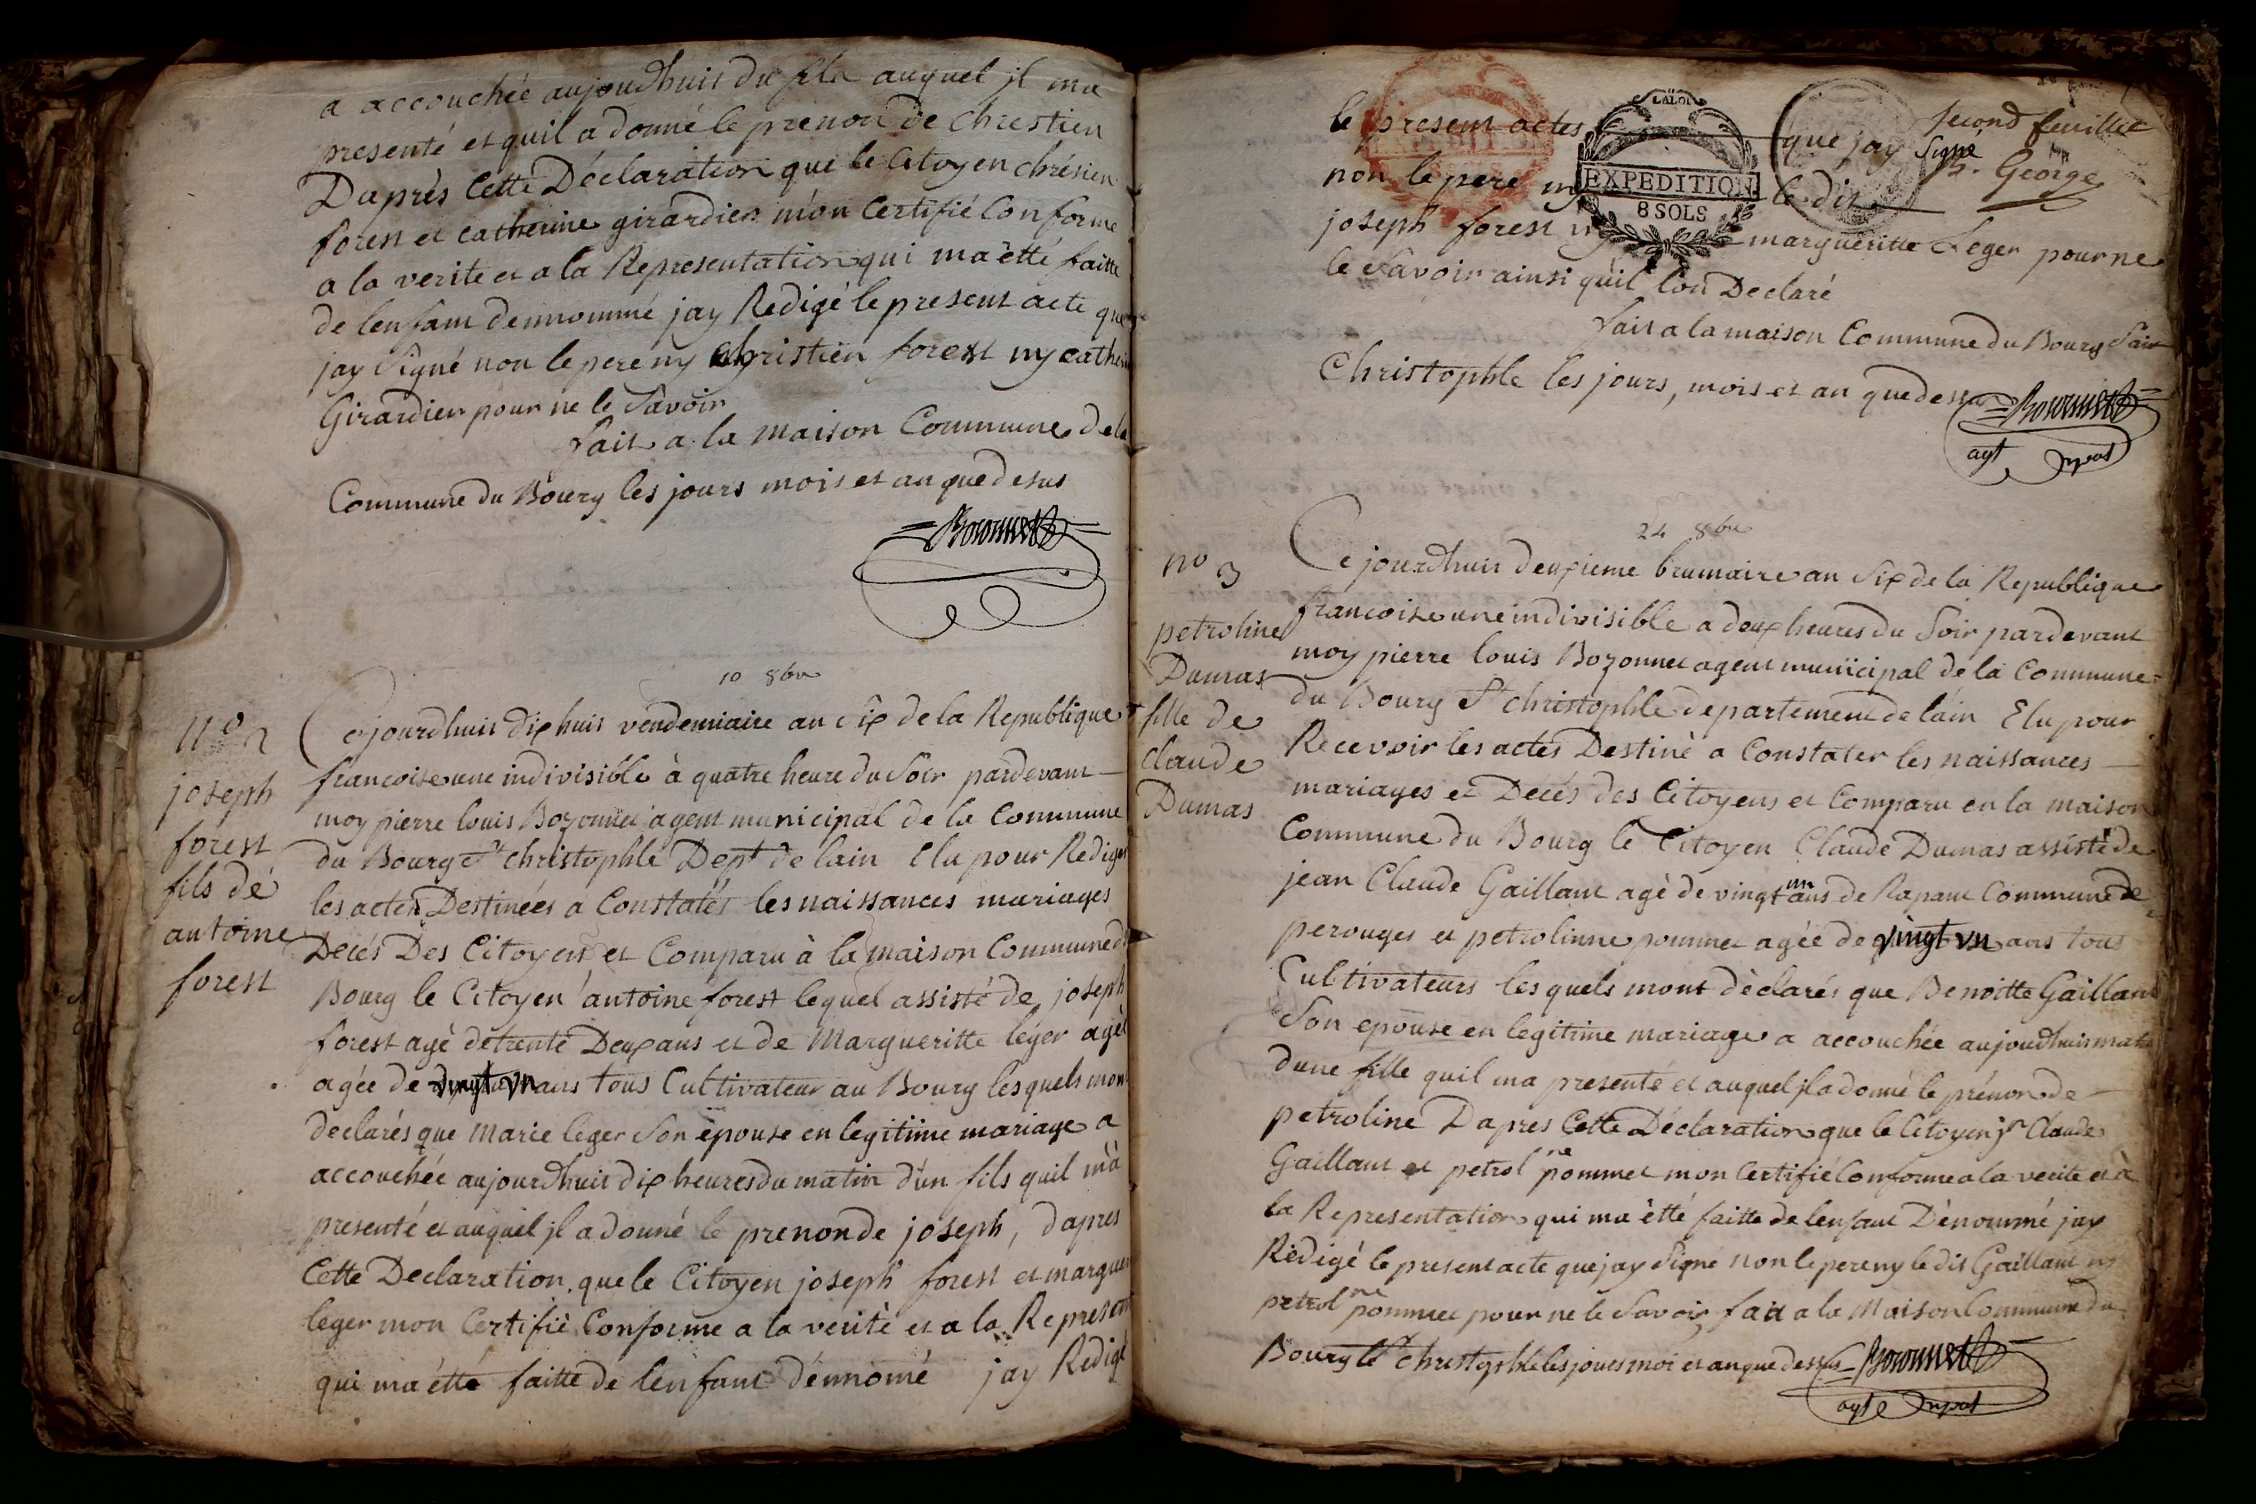 a accouchée aujourdhuit du fils auquel jl ma
presenté et quil a donné le prenon de chrestien
Daprès Cette Déclaration que le Citoyen chrétien
forest et catherine girardier mon Certifié Conforme
a la verite et a la Representation qui ma été faitte
de lenfant dennommé jay Redigé le present acte que
jay signé non le pere ny christien forest ny catherin
Girardier pour ne le savoir
fait a la maison Commune de la
Commune du Bourg les jours mois et an que desus
Bozonnet
10 8bre
nº 2
joseph
forest
fils de
antoine
forest
Cejourdhuit dix huit vendemiaire an six de la Republique
francoise une indivisible à quatre heure du soir pardevant
moy pierre louis Bozonnet agent municipal de la Commune
du Bourg St christophle Dept de lain Elu pour Rediger
les actes Destinées a Constatés les naissances mariages
Decés Des Citoyens et Comparu à la maison Commune d
Bourg le Citoyen antoine forest lequel assisté de joseph
forest agé de trente Deux ans et de Margueritte léger agé
agée de vingt un ans tous Cultivateur au Bourg lesquels mon
declarés que Marie léger son épouse en legitime mariage a
accouchée aujourdhuit dix heures du matin d'un fils quil m'a
presenté et auquel jl a donné le prenon de joseph, dapres
Cette Declaration que le Citoyen joseph forest et marguer
leger mon Certifié Conforme a la verité et a la Represent
qui ma étté faitte de lenfant dénnomé jay Redigé
second feuillet
P. George
LA LOI
EXPEDITION
8 SOLS
le present actes que jay signé
non le pere ny le dit
joseph forest ny margueritte Leger pour ne
le savoir ainsi quil lon Declaré
fait a la maison Commune du Bourg Saint
Christophle les jours, mois et an que dessu
Bozonnet
agt mpal
24 8bre
nº 3
petroline
Dumas
fille de
claude
Dumas
Ce jourdhuit deuxieme brumaire an six de la Republique
francoise une indivisible a deux heures du soir pardevant
moy pierre louis Bozonnet agent municipal de la Commune
du Bourg St christophle departement de lain Elu pour
Recevoir les actes Destiné a Constater les naissances
mariages et Decés des Citoyens et Comparu en la maison
Commune du Bourg le Citoyen Claude Dumas assisté de
jean Claude Gaillant agé de vingt un ans de Rapant Commune de
perouges et petrolinne pommet agée de vingt un ans tous
Cultivateurs les quels mont déclarés que Benoitte Gaillant
Son epouse en legitime mariage a accouchée aujourdhuit matin
dune fille quil ma presenté et auquel jl a donné le prénon de
petroline Dapres Cette Déclaration que le Citoyen jn Claude
Gaillant et petrolne pommet mon Certifié Conforme a la verite et à
la Representation qui ma étté faitte de lenfant Dénommé jay
Rédigé le present acte que jay signé non le pere ny le dit Gaillant ny
petrolne pommet pour ne le savoir fait a la Maison Commune du
Bourg St christophle les jours moi et an que dessus Bozonnet
agt mpal